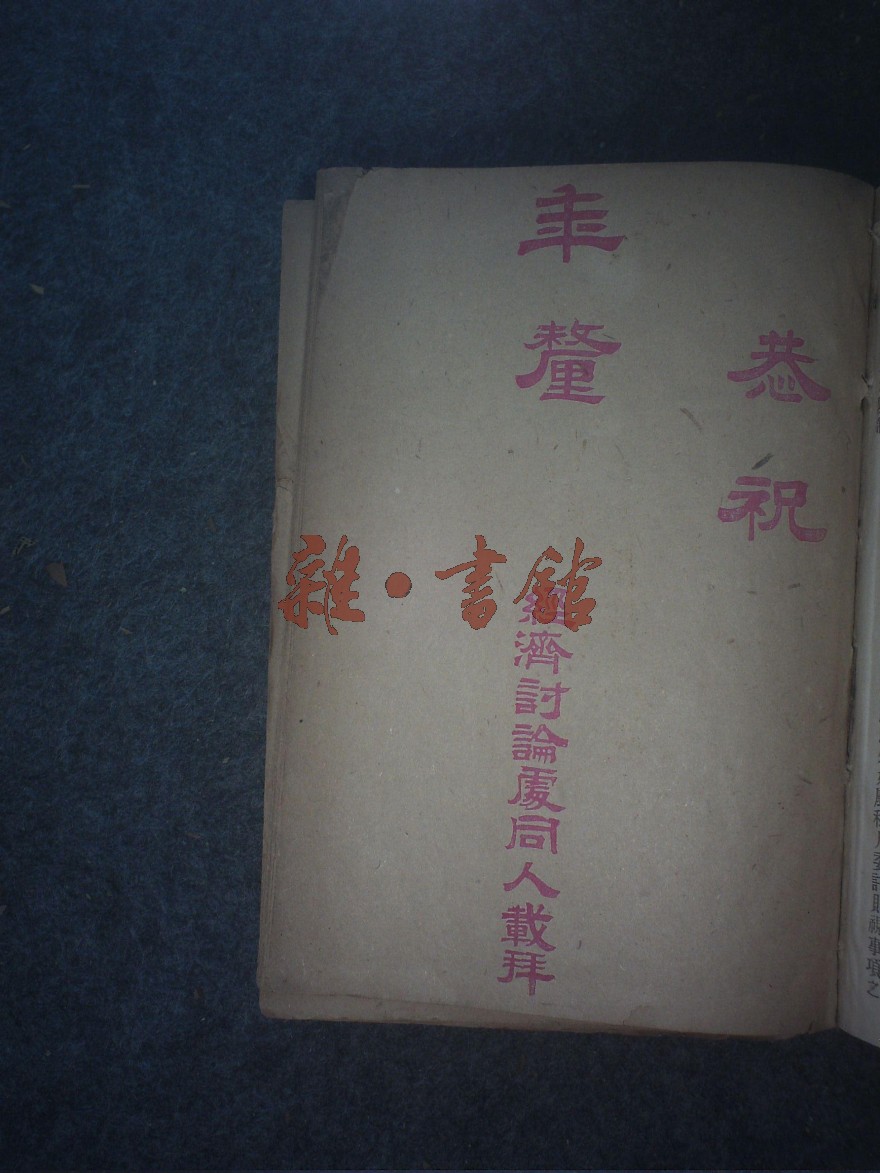 恭祝
年釐
經濟討論處同人載拜
雜·書館